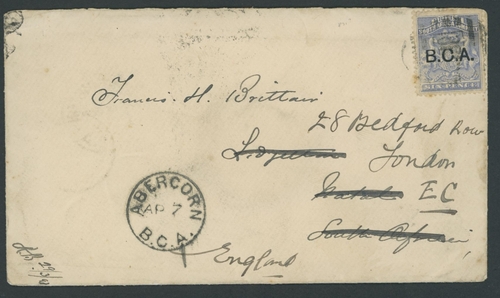 B.C.A.
SIX PENCE
Francis. H. Brittain
28 Bedford Row
London
Natal EC
South Africa
England
ABERCORN
AP 7
B.C.A.